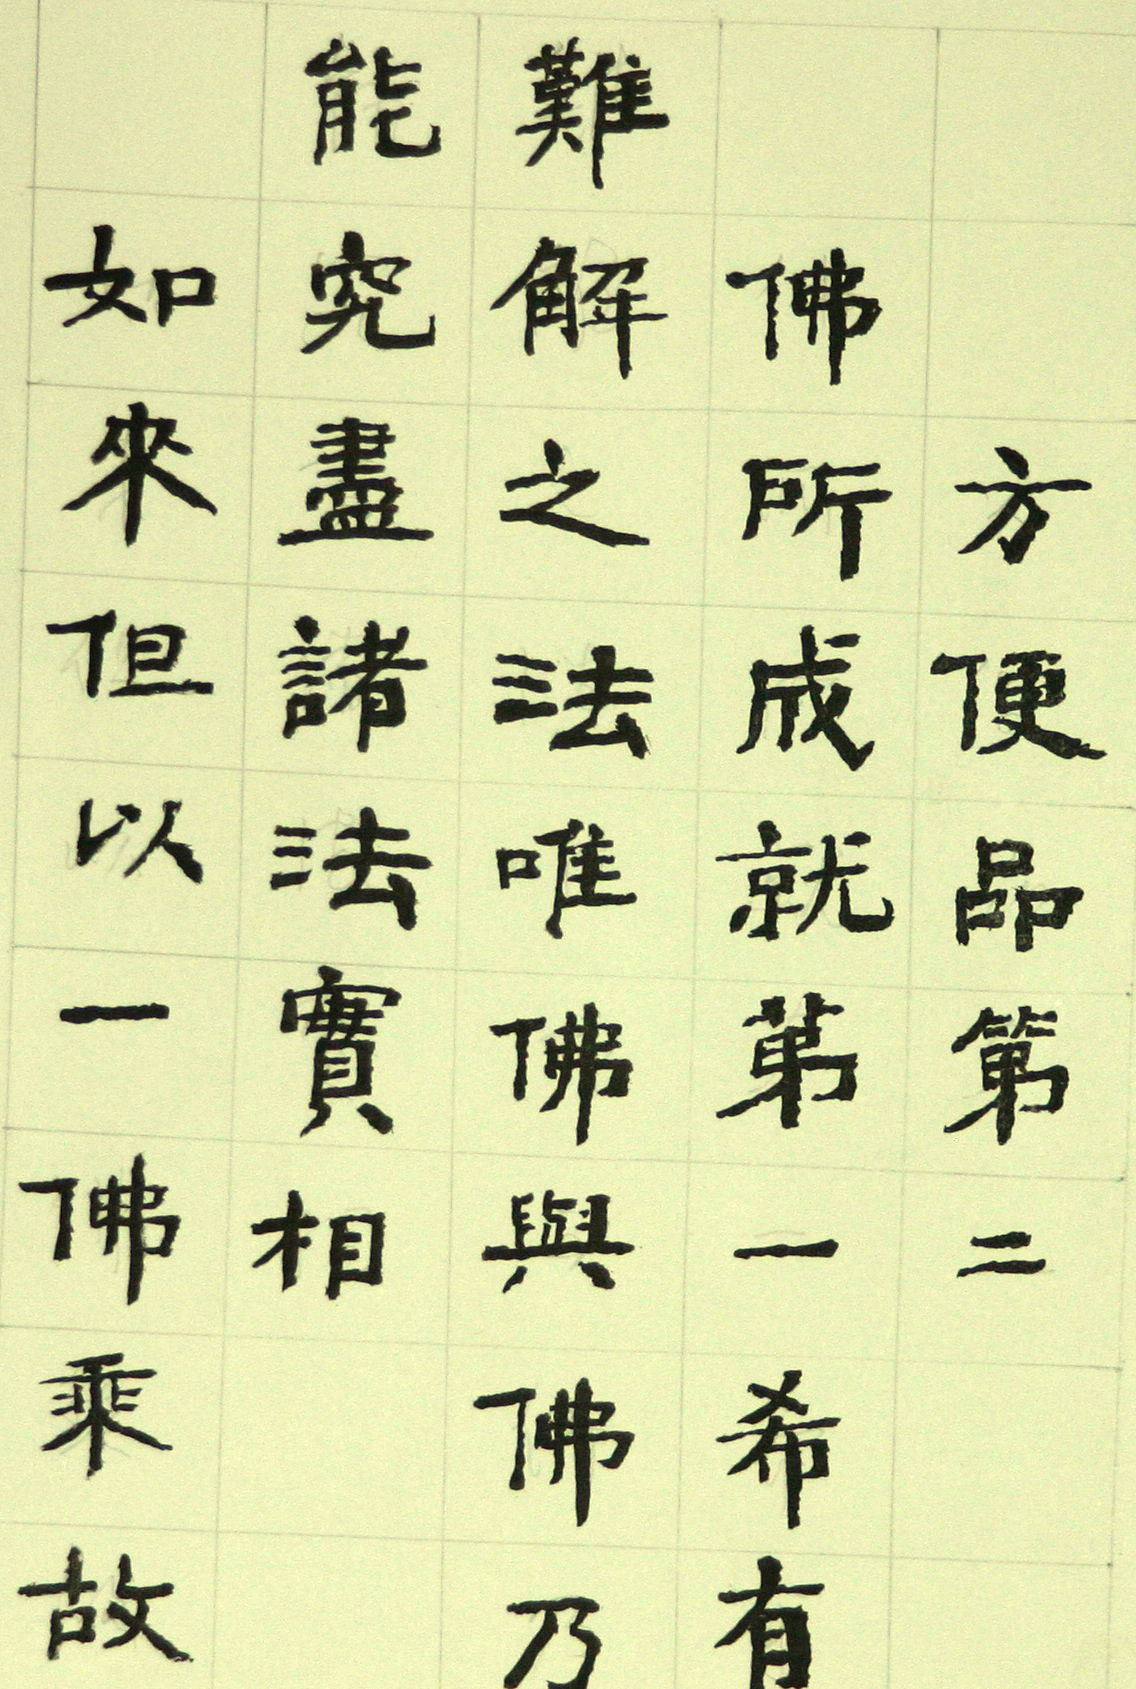 方便品第二
佛所成就第一希有
難解之法唯佛與佛乃
能究盡諸法實相
如來但以一佛乘故